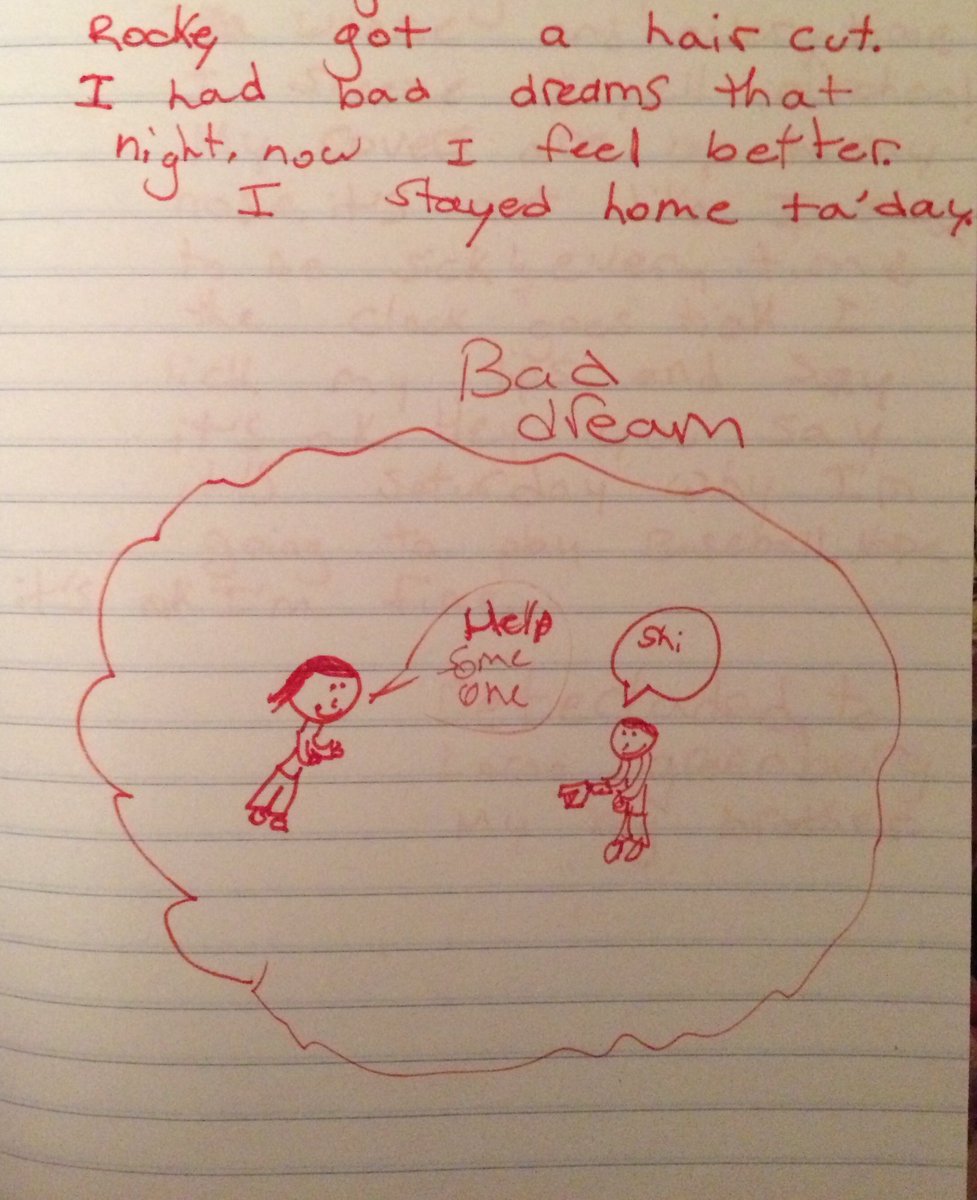 Rocky got a hair cut.
I had bad dreams that
night, now I feel better.
I stayed home ta'day.
Bad
dream
Help
some
one
Shi